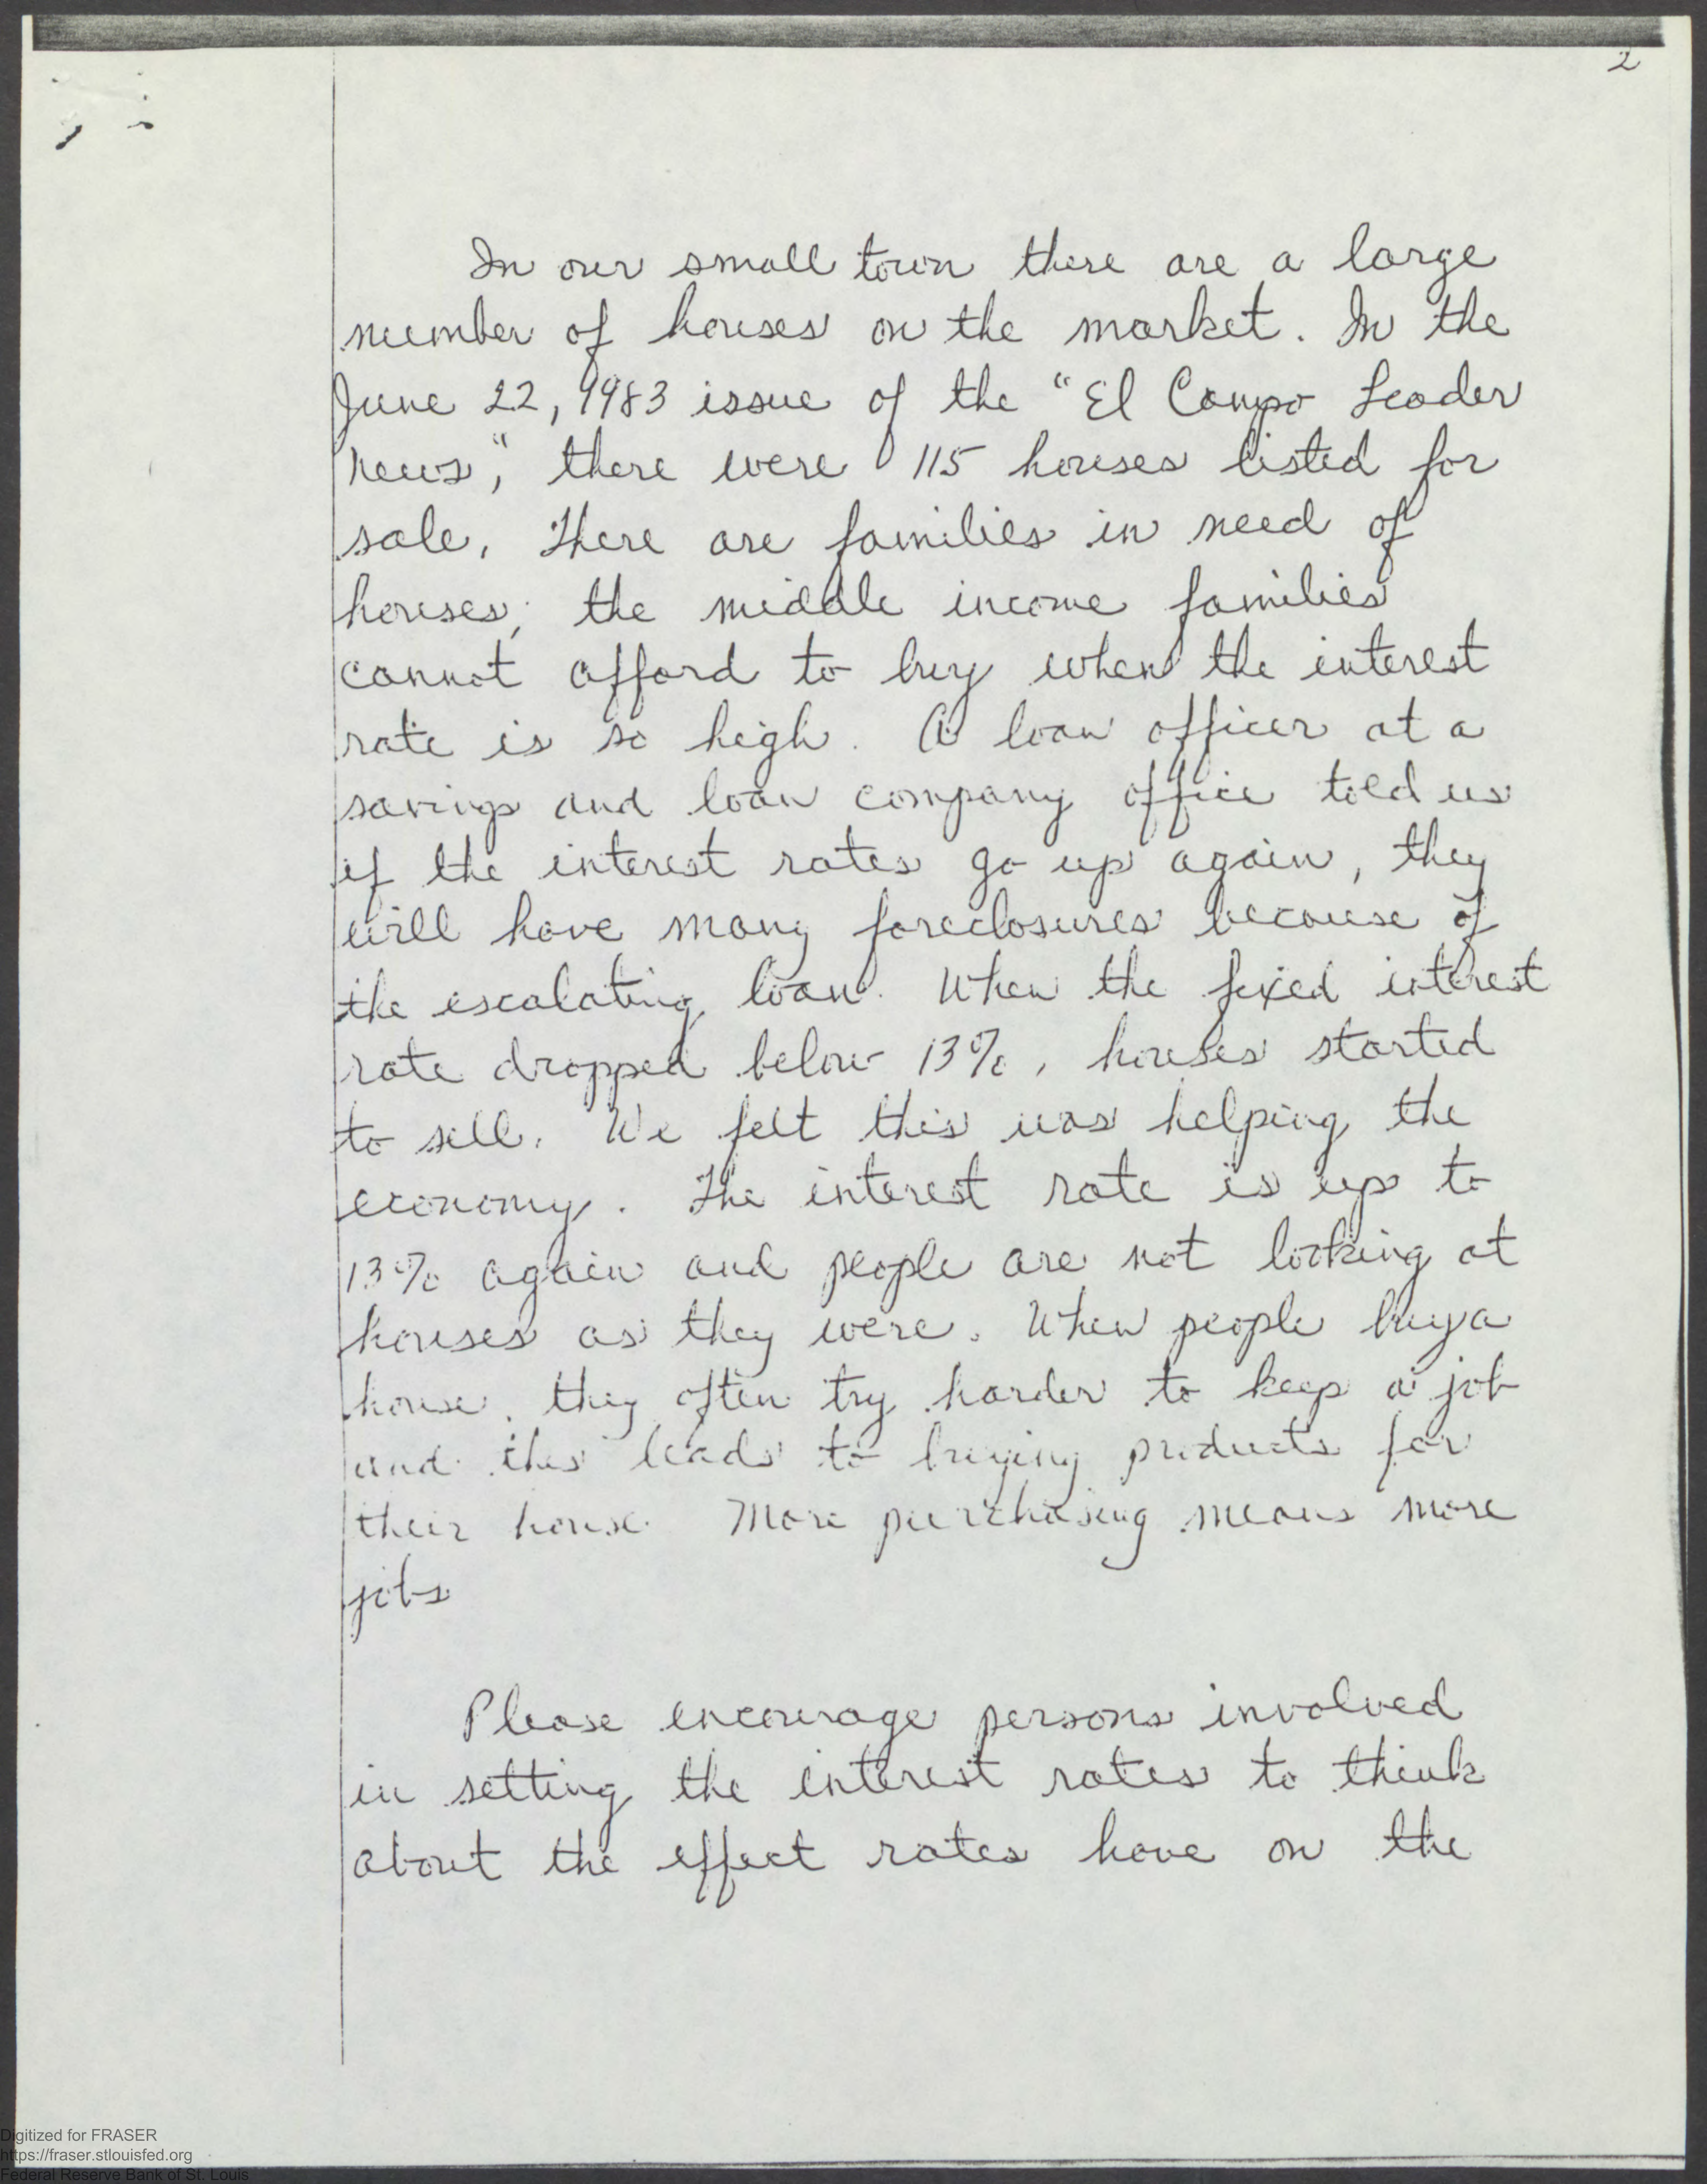 2
In our small town there are a large
number of houses on the market. In the
June 22, 1983 issue of the "El Campo Leader
News," there were 115 houses listed for
sale. There are families in need of
houses; the middle income families
cannot afford to buy when the interest
rate is so high. A loan officer at a
savings and loan company office told us
if the interest rates go up again, they
will have many foreclosures because of
the escalating loan. When the fixed interest
rate dropped below 13%, houses started
to sell. We felt this was helping the
economy. The interest rate is up to
13% again and people are not looking at
houses as they were. When people buy a
house, they often try harder to keep a job
and this leads to buying products for
their house. More purchasing means more
jobs
Please encourage persons involved
in setting the interest rates to think
about the effect rates have on the
Digitized for FRASER
https://fraser.stlouisfed.org
Federal Reserve Bank of St. Louis